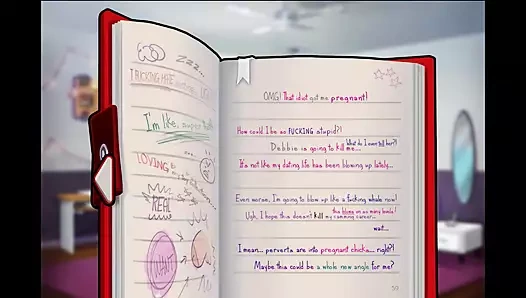 zzz...
I'm like, super
LOVING
REAL
WANT
OMG! That idiot got me pregnant!
How could I be so FUCKING stupid?!
What do I even tell her?!
Debbie is going to kill me...
It's not like my dating life has been blowing up lately...
Even worse, I'm going to blow up like a fucking whale now!
this blows on so many levels!
Ugh, I hope this doesn't kill my camming career...
wait...
I mean... perverts are into pregnant chicks... right?!
Maybe this could be a whole new angle for me?